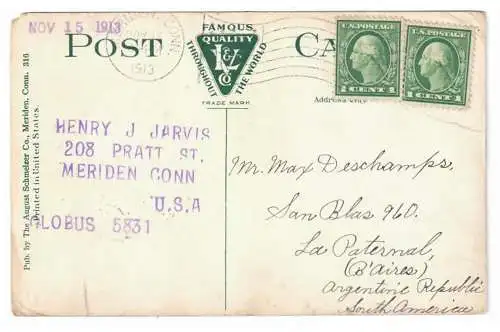 NOV 15 1913
POST CA
FAMOUS
QUALITY
THROUGHOUT THE WORLD
CO
TRADE MARK
CONN.
NOV
1913
U.S. POSTAGE U.S. POSTAGE
1 CENT 1 1 CENT 1
Address Only
HENRY J JARVIS
208 PRATT ST.
MERIDEN CONN
U.S.A
GLOBUS 5831
Mr. Max Deschamps.
San Blas 960.
La Paternal,
(B'Aires)
Argentine Republic
South America
Pub. by The August Schmelzer Co., Meriden, Conn. 316
Printed in United States.